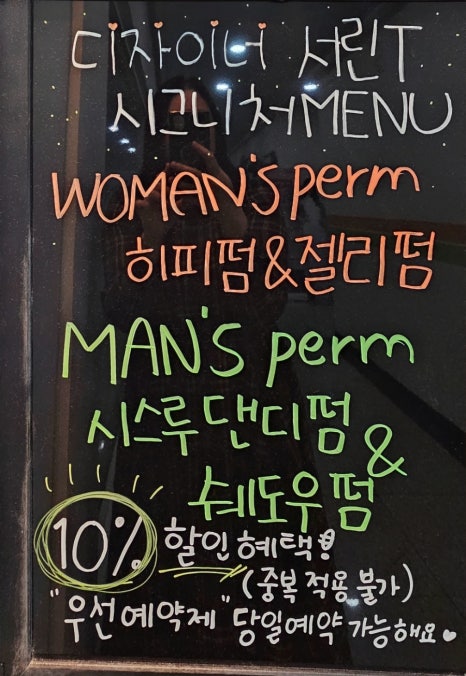 디자이너 서린T
시그니처MENU
WOMAN'S perm
히피펌&젤리펌
MAN'S perm
시스루 댄디펌
&
쉐도우펌
10% 할인 혜택!
(중복 적용 불가)
"우선예약제" 당일예약 가능해요